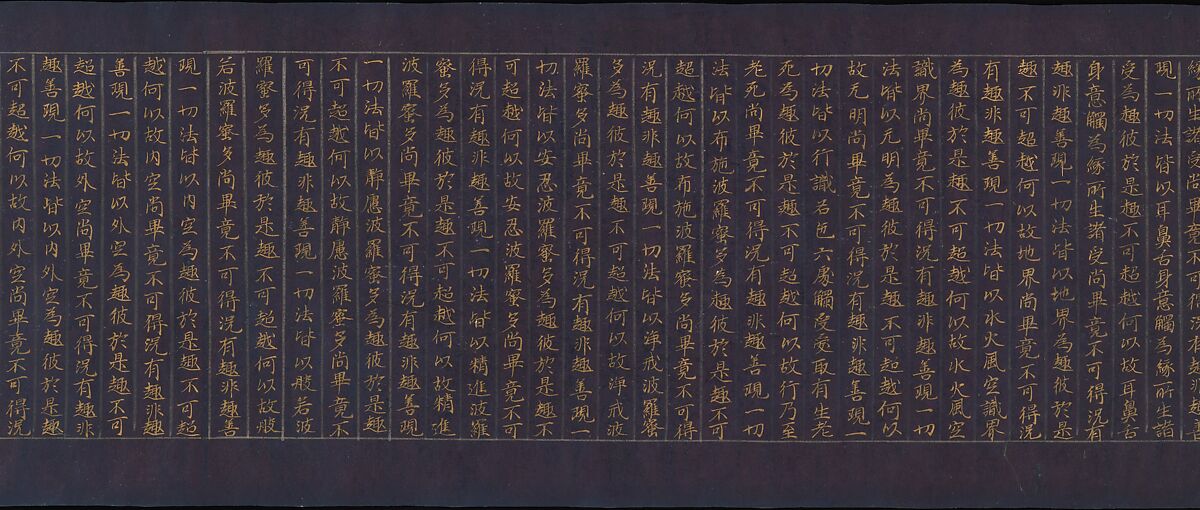 緣所生諸受尚畢竟不可得況有趣非趣善
現一切法皆以耳鼻舌身意觸為緣所生諸
受為趣彼於是趣不可超越何以故耳鼻舌
身意觸為緣所生諸受尚畢竟不可得況有
趣非趣善現一切法皆以地界為趣彼於是
趣不可超越何以故地界尚畢竟不可得況
有趣非趣善現一切法皆以水火風空識界
為趣彼於是趣不可超越何以故水火風空
識界尚畢竟不可得況有趣非趣善現一切
法皆以无明為趣彼於是趣不可超越何以
故无明尚畢竟不可得況有趣非趣善現一
切法皆以行識名色六處觸受愛取有生老
死為趣彼於是趣不可超越何以故行乃至
老死尚畢竟不可得況有趣非趣善現一切
法皆以布施波羅蜜多為趣彼於是趣不可
超越何以故布施波羅蜜多尚畢竟不可得
況有趣非趣善現一切法皆以淨戒波羅蜜
多為趣彼於是趣不可超越何以故淨戒波
羅蜜多尚畢竟不可得況有趣非趣善現一
切法皆以安忍波羅蜜多為趣彼於是趣不
可超越何以故安忍波羅蜜多尚畢竟不可
得況有趣非趣善現一切法皆以精進波羅
蜜多為趣彼於是趣不可超越何以故精進
波羅蜜多尚畢竟不可得況有趣非趣善現
一切法皆以靜慮波羅蜜多為趣彼於是趣
不可超越何以故靜慮波羅蜜多尚畢竟不
可得況有趣非趣善現一切法皆以般若波
羅蜜多為趣彼於是趣不可超越何以故般
若波羅蜜多尚畢竟不可得況有趣非趣善
現一切法皆以內空為趣彼於是趣不可超
越何以故內空尚畢竟不可得況有趣非趣
善現一切法皆以外空為趣彼於是趣不可
超越何以故外空尚畢竟不可得況有趣非
趣善現一切法皆以內外空為趣彼於是趣
不可超越何以故內外空尚畢竟不可得況